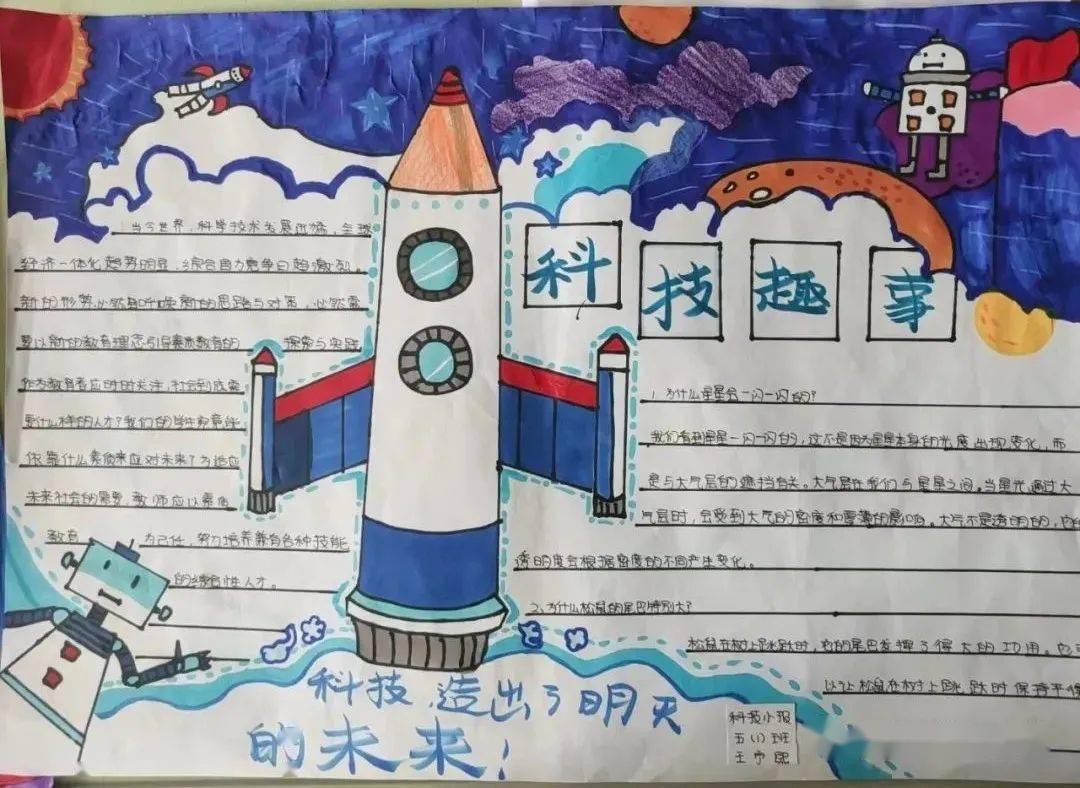 科技趣事
当今世界，科学技术发展迅猛，全球
经济一体化趋势明显，综合国力竞争日趋激烈。
新的形势必然呼唤新的思路与对策，必然需
要以新的教育理念引导素质教育的 探索与实践
作为教育者应时时关注，社会到底需
要什么样的人才？我们的学生究竟能
依靠什么素质来应对未来？为适应
未来社会的需要，教师应以素质
教育 为己任，努力培养兼有各种技能
的综合性人才。
1、为什么星星会一闪一闪的？
我们看到星星一闪一闪的，这不是因为星星本身的光度出现变化，而
是与大气层的遮挡有关。大气层在我们与星星之间，当星光通过大
气层时，会受到大气的密度和厚薄的影响。大气不是透明的，它的
透明度会根据密度的不同产生变化。
2、为什么松鼠的尾巴特别大？
松鼠在树上跳跃时，它的尾巴发挥了很大的功用。它可
以让松鼠在树上跳跃时保持平衡
科技，造出了明天
的未来！
科技小报
五（1）班
王予熙